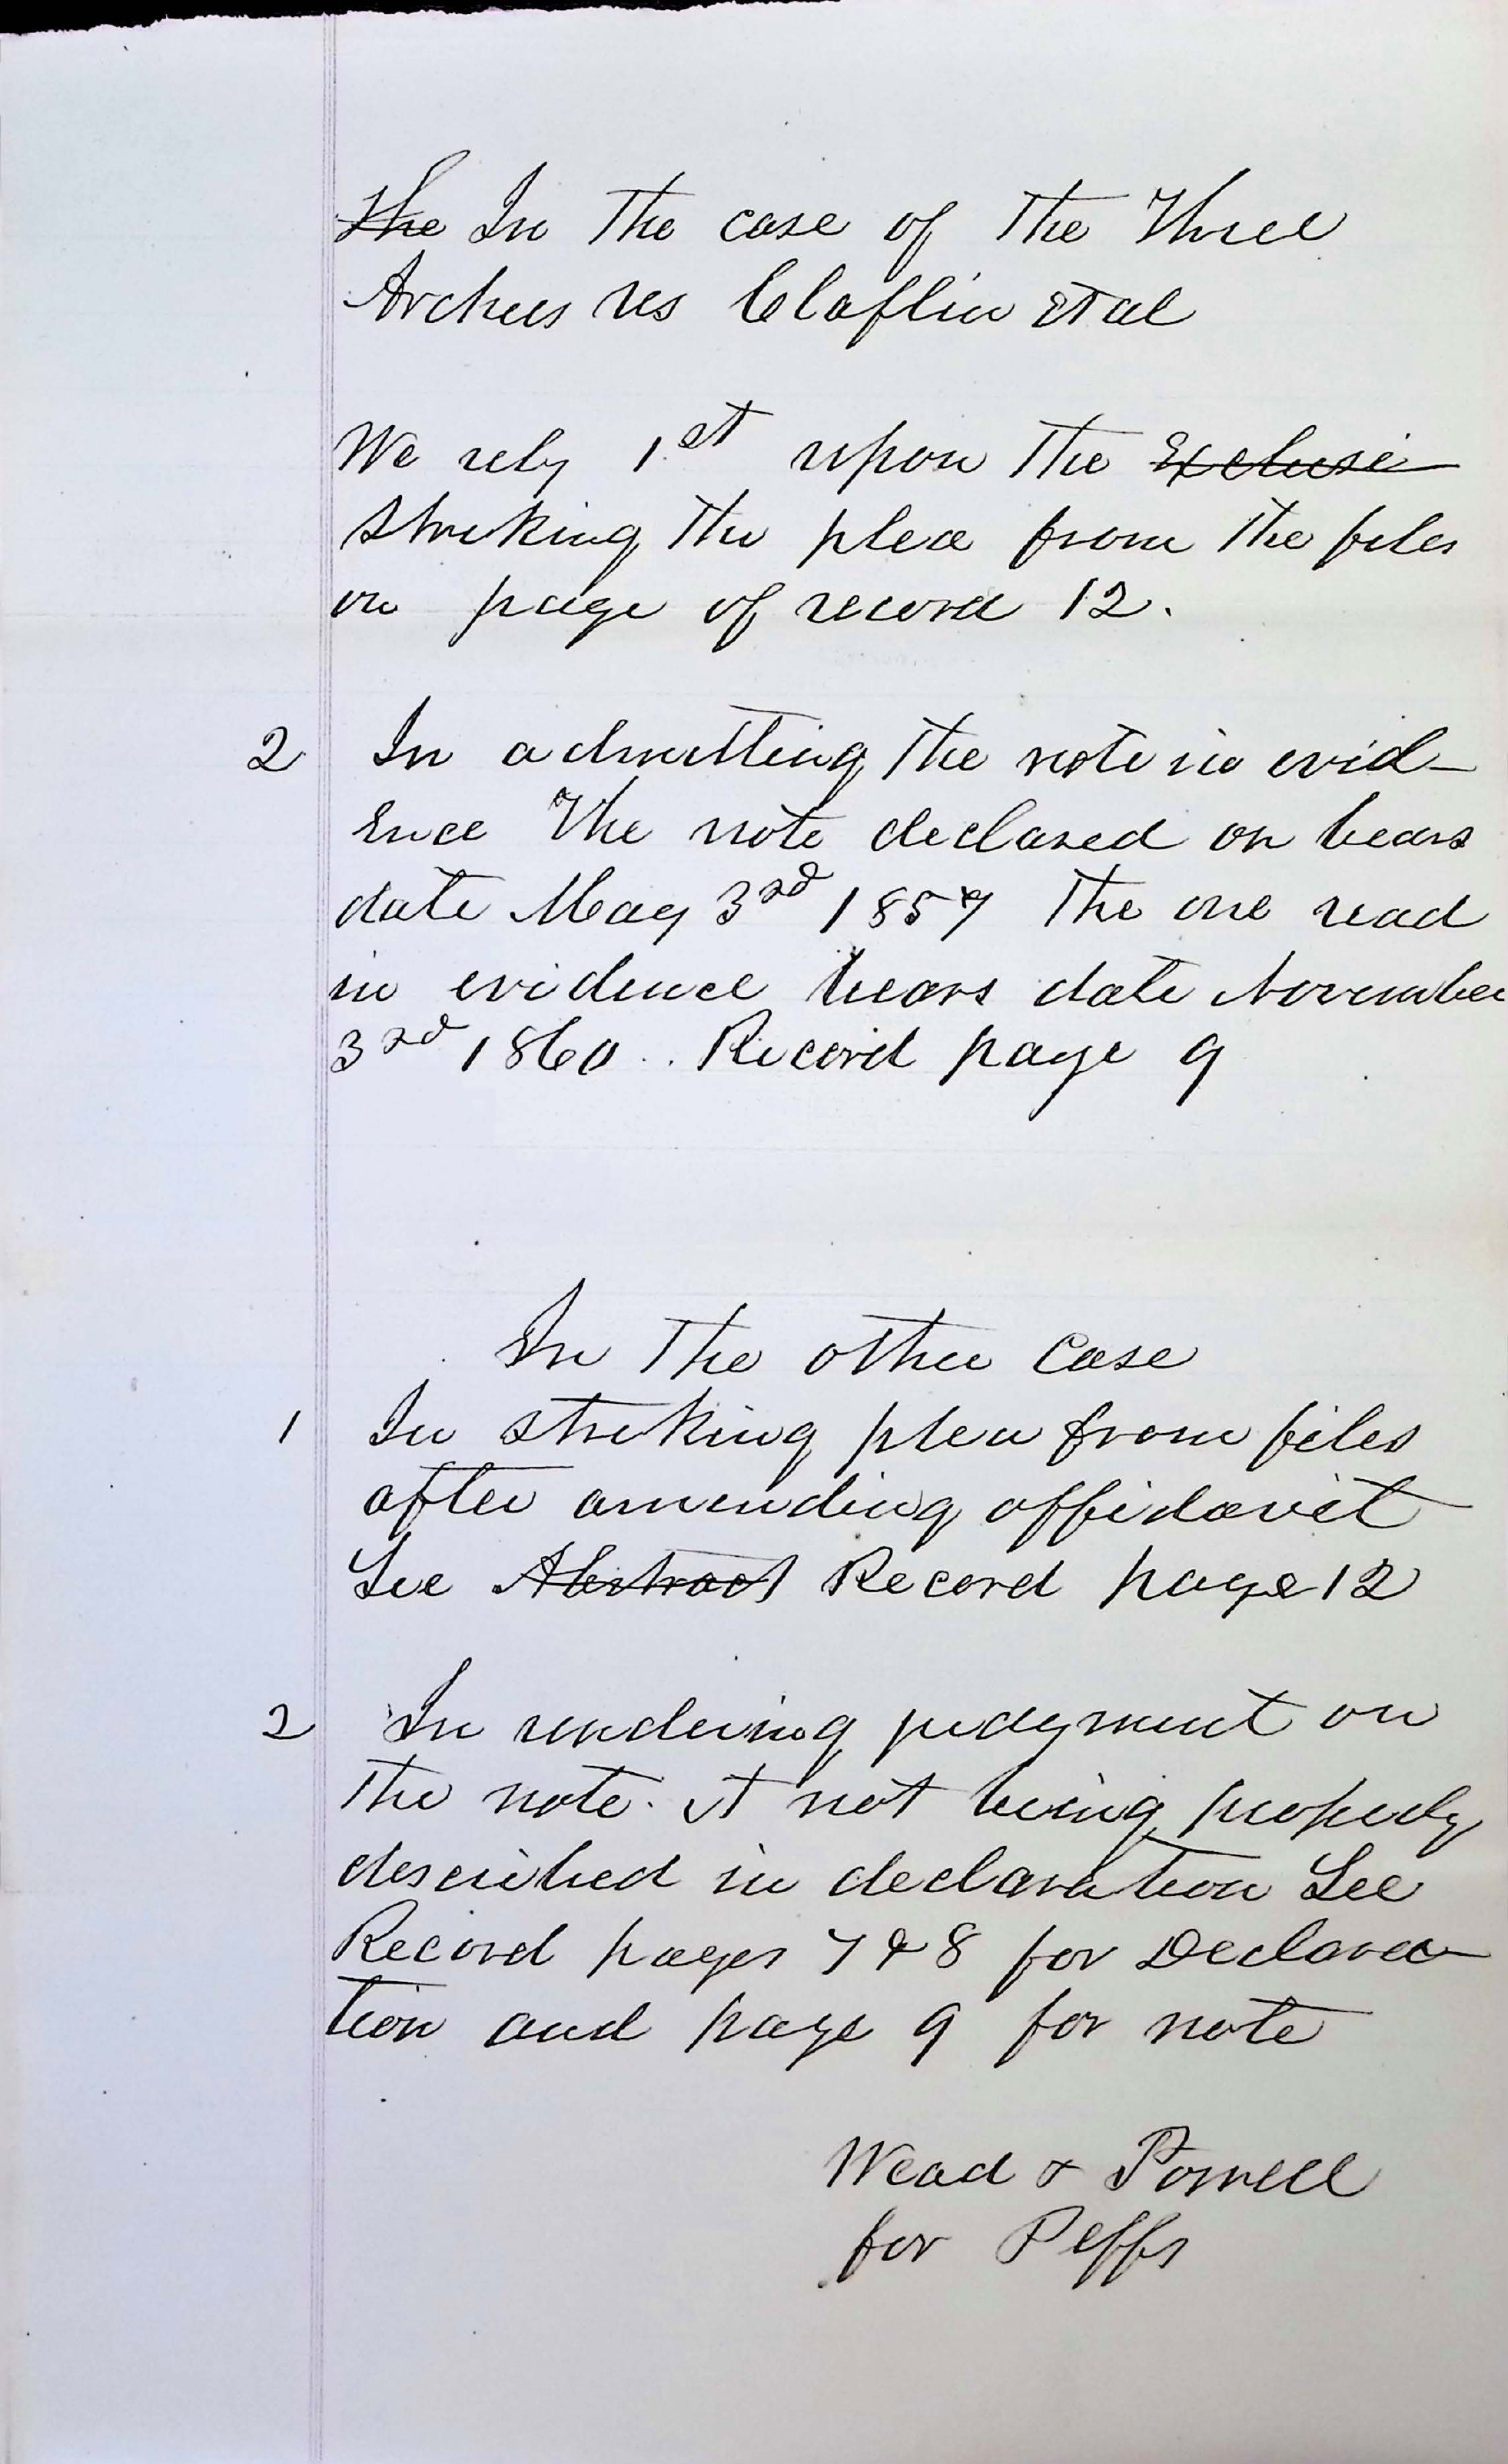 the In the case of the Three
Archers vs Claflin et al
We rely 1st upon the Exclusi
striking the plea from the files
on page of record 12.
2 In admitting the note in evid-
ence The note declared on bears
date May 3rd 1857 The one read
in evidence bears date November
3rd 1860 . . Record page 9
In the other case
1 In striking plea from files
after amending affidavit
See Abstract Record page 12
2 In rendering judgment on
the note. it not being properly
described in declaration See
Record pages 7 & 8 for Declara-
tion and page 9 for note
Wead & Powell
for Peffs